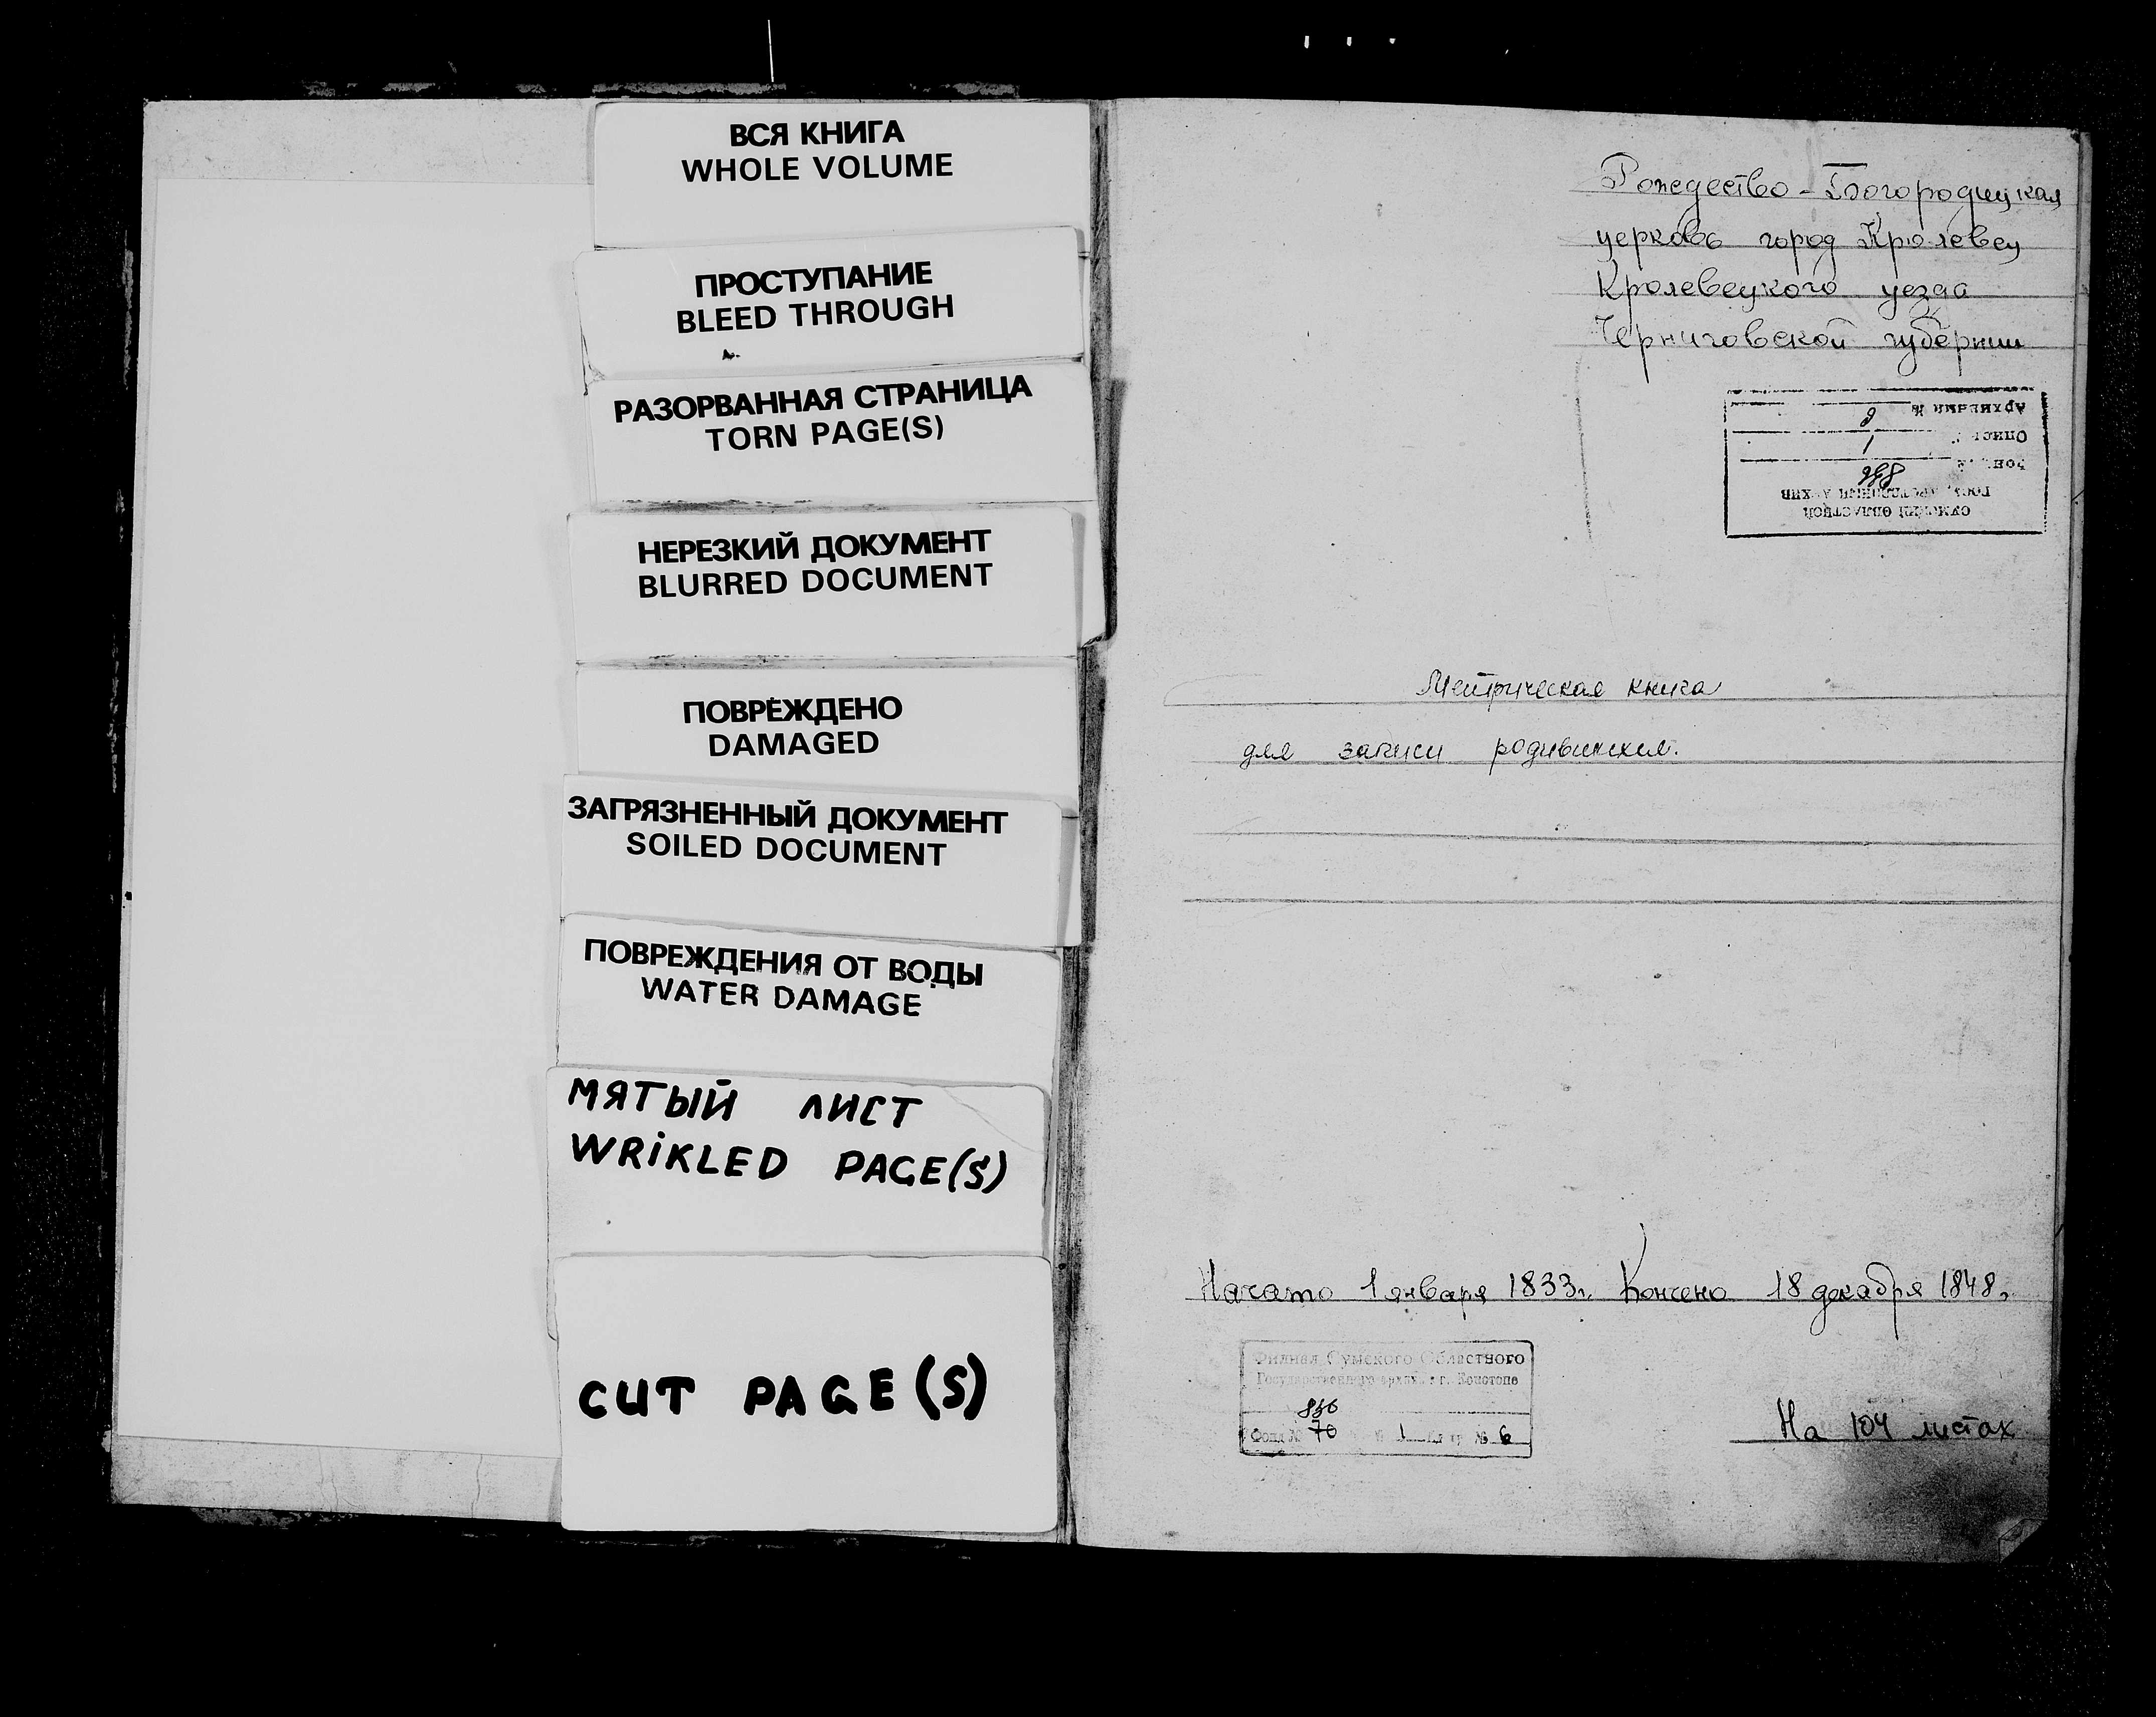 ВСЯ КНИГА
WHOLE VOLUME
ПРОСТУПАНИЕ
BLEED THROUGH
РАЗОРВАННАЯ СТРАНИЦА
TORN PAGE(S)
НЕРЕЗКИЙ ДОКУМЕНТ
BLURRED DOCUMENT
ПОВРЕЖДЕНО
DAMAGED
ЗАГРЯЗНЕННЫЙ ДОКУМЕНТ
SOILED DOCUMENT
ПОВРЕЖДЕНИЯ ОТ ВОДЫ
WATER DAMAGE
МЯТЫЙ ЛИСТ
WRIKLED PAGE(S)
CUT PAGE(S)
Рождество-Богородицкая
церковь город Кролевец
Кролевецкого уезда
Черниговской губернии
СУМСКИЙ ОБЛАСТНОЙ
ГОСУДАРСТВЕННЫЙ АРХИВ
Фонд №
Опись № 1
Архивный №
Метрическая книга
для записи родившихся.
Начато 1 января 1833г. Кончено 18 декабря 1848г.
Филиал Сумского Областного
Государственного архива в г. Конотопе
Фонд № 70 № 1 № 6
На 104 листах